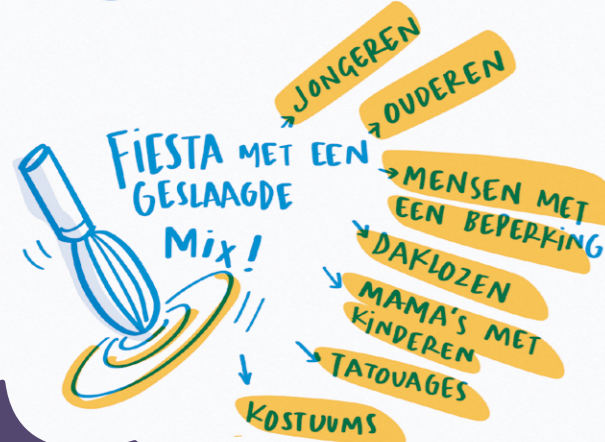 FIESTA MET EEN
GESLAAGDE
MIX!
JONGEREN
OUDEREN
MENSEN MET
EEN BEPERKING
DAKLOZEN
MAMA'S MET
KINDEREN
TATOUAGES
KOSTUUMS